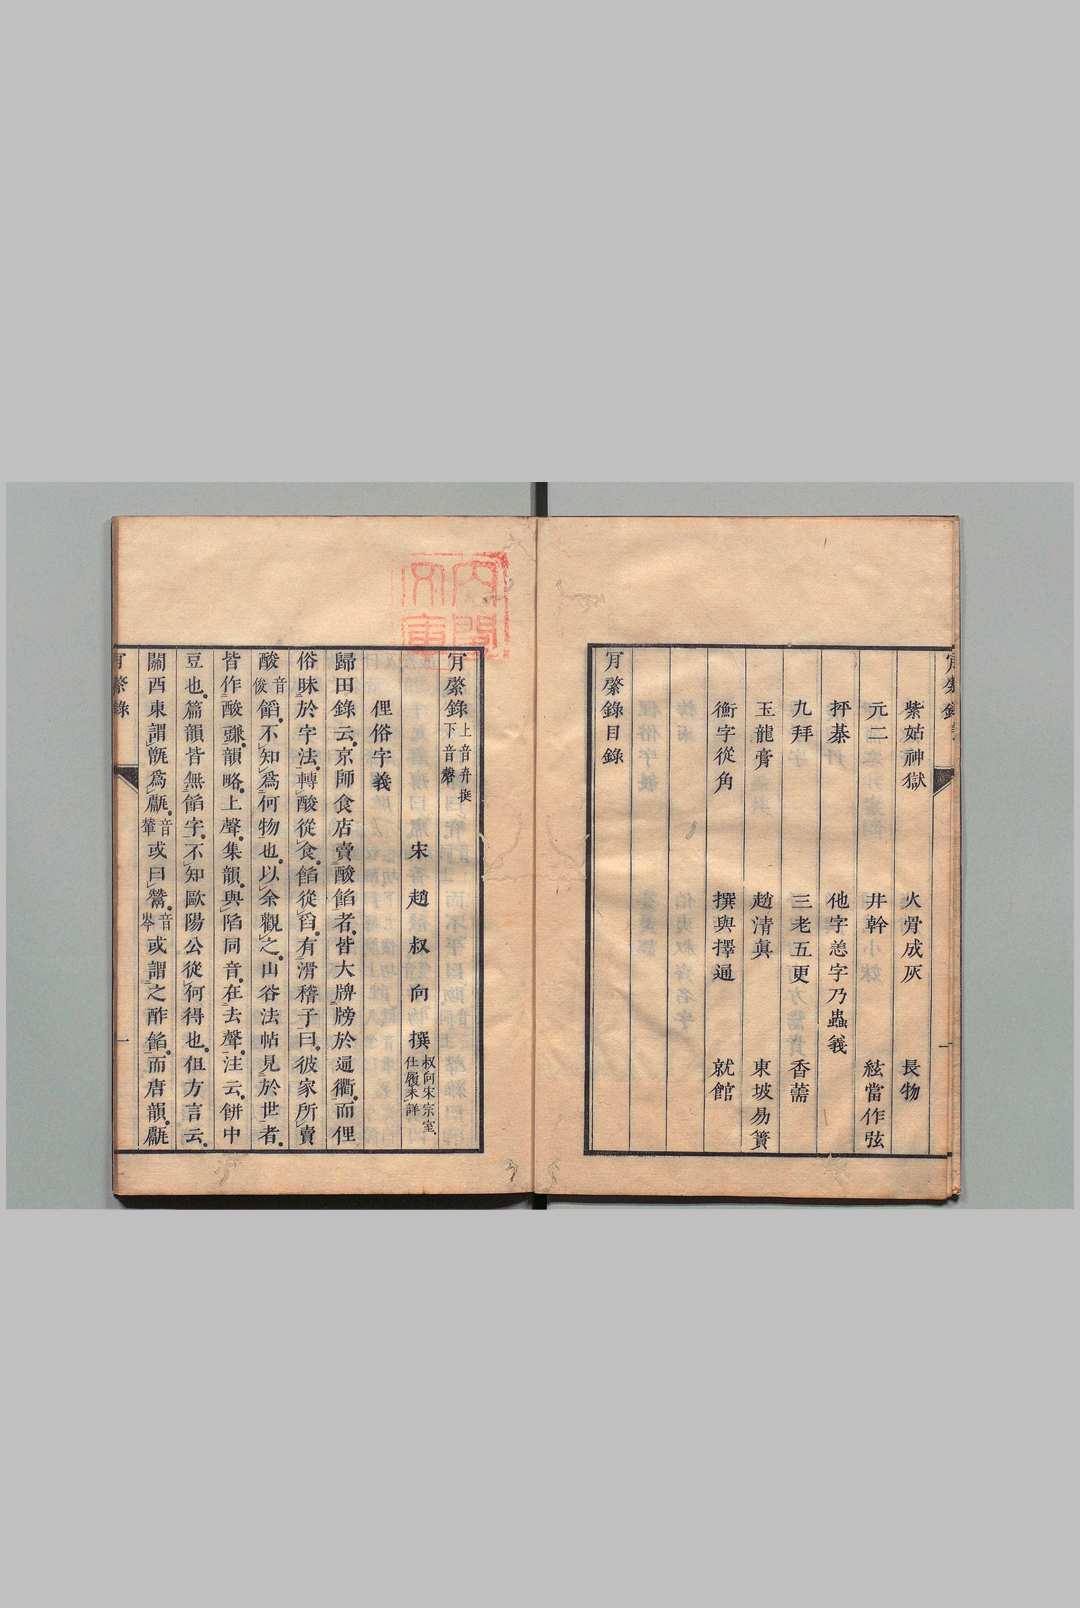 肎綮錄
一
紫姑神獄 火骨成灰 長物
元二 井幹 絃當作弦
抨棊 他字恙字乃蟲義
九拜 三老五更 香薷
玉龍膏 趙清真 東坡易簀
衡字從角 撰與擇通 就館
肎綮錄目錄
內閣文庫
肎綮錄 下音磬
宋 趙叔向 撰 叔向宋宗室仕履未詳
俚俗字義
歸田錄云京師食店賣酸餡者皆大牌牓於通衢而俚
俗昧於字法轉酸從食餡從舀有滑稽子曰彼家所賣
酸音俊饀不知爲何物也以余觀之山谷法帖見於世者
皆作酸豏韻略上聲集韻與陷同音在去聲注云餅中
豆也篇韻皆無餡字不知歐陽公從何得也但方言云
關西東謂甑爲甗音輦或曰鬵音岑或謂之酢餾而唐韻甗
肎綮錄
一